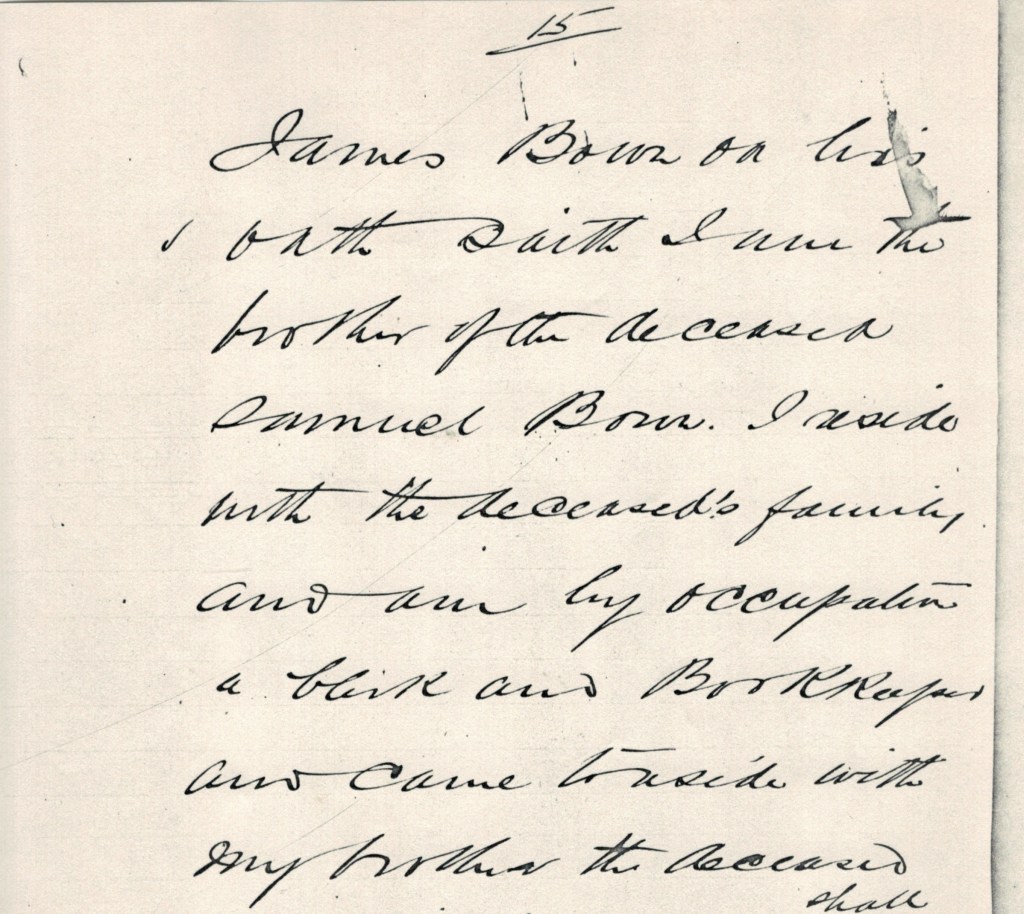 15
James Bown on his
oath saith I am the
brother of the deceased
Samuel Bown. I reside
with the deceased's family,
and am by occupation
a Clerk and Bookkeeper
and came to reside with
my brother the deceased
shall